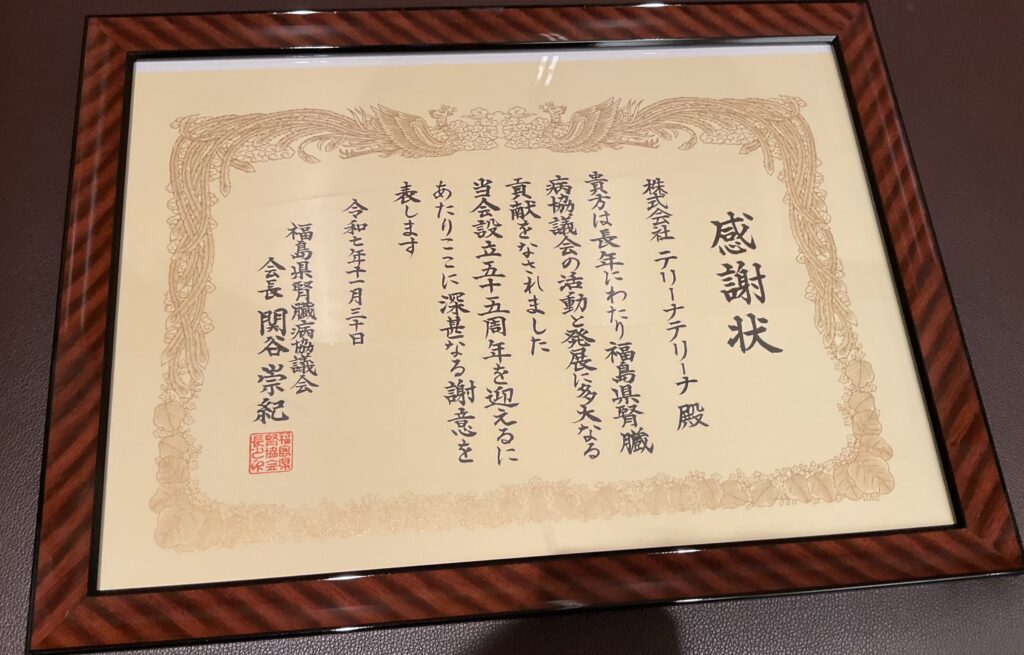 感謝状
株式会社 テリーナテリーナ 殿
貴方は長年にわたり福島県腎臓
病協議会の活動と発展に多大なる
貢献をなされました
当会設立五十五周年を迎えるに
あたりここに深甚なる謝意を
表します
令和七年十一月三十日
福島県腎臓病協議会
会長 関谷崇紀